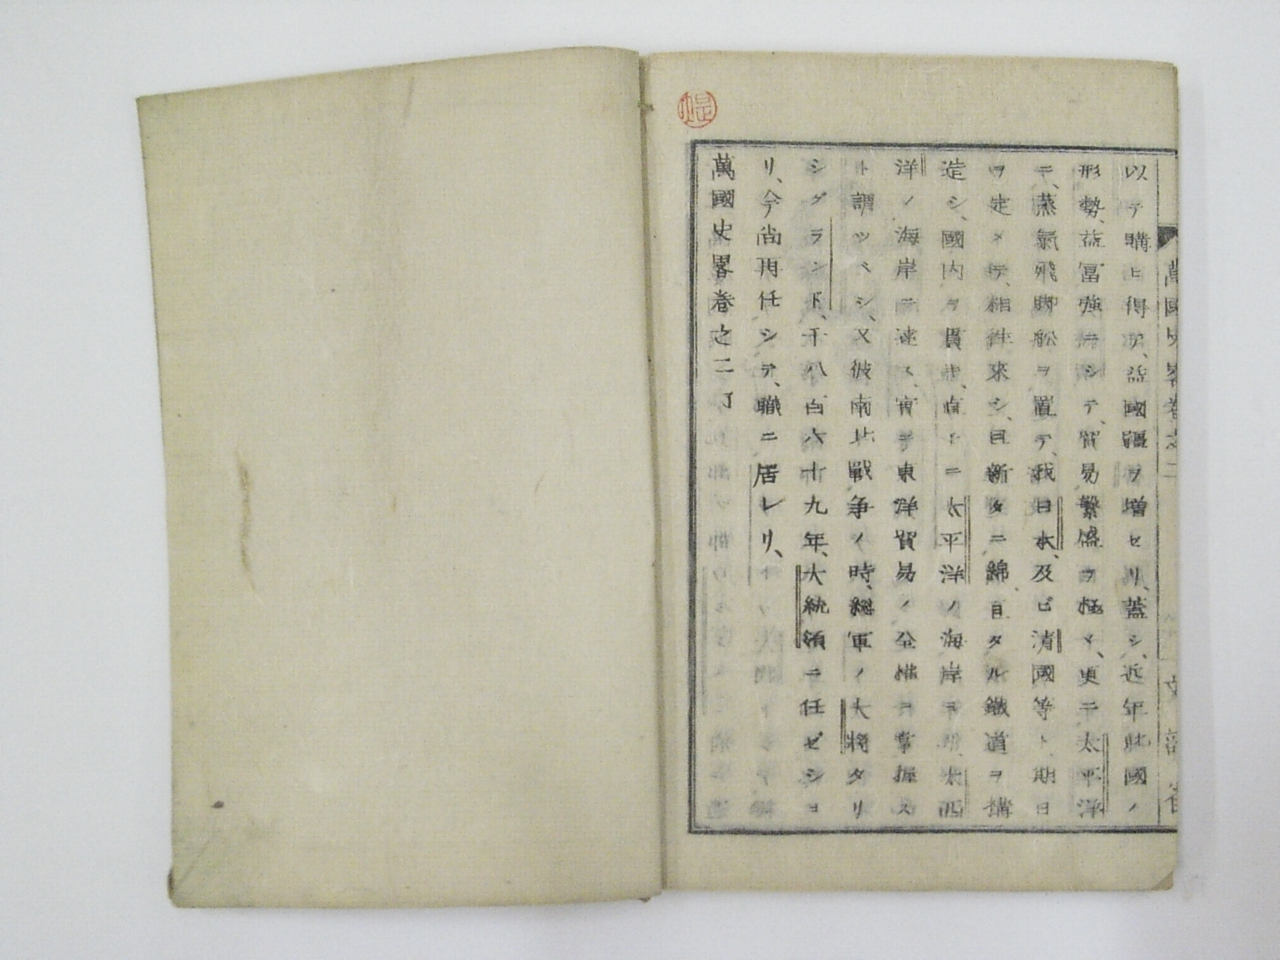 萬國史畧卷之二 文部省
以テ購ヒ得テ、益國疆ヲ増セリ、蓋シ、近年此國ノ
形勢、益富強ニシテ、貿易繁盛ヲ極メ、更ニ太平洋
ニ、蒸氣飛脚舩ヲ置テ、我日本、及ビ清國等ト、期日
ヲ定メテ、相徃來シ、且新タニ綿亘タル鐵道ヲ講
造シ、國内ヲ貫キ、直ニ太平洋ノ海岸ヨリ、太西
洋ノ海岸ニ達ス、實ニ東洋貿易ノ全權ヲ掌握ス
ト謂ツベシ、又彼南北戰争ノ時、總軍ノ大將タリ
シグラント、千八百六十九年、大統領ニ任ゼシヨ
リ、今尚再任シテ、職ニ居レリ、
萬國史畧卷之二 丁